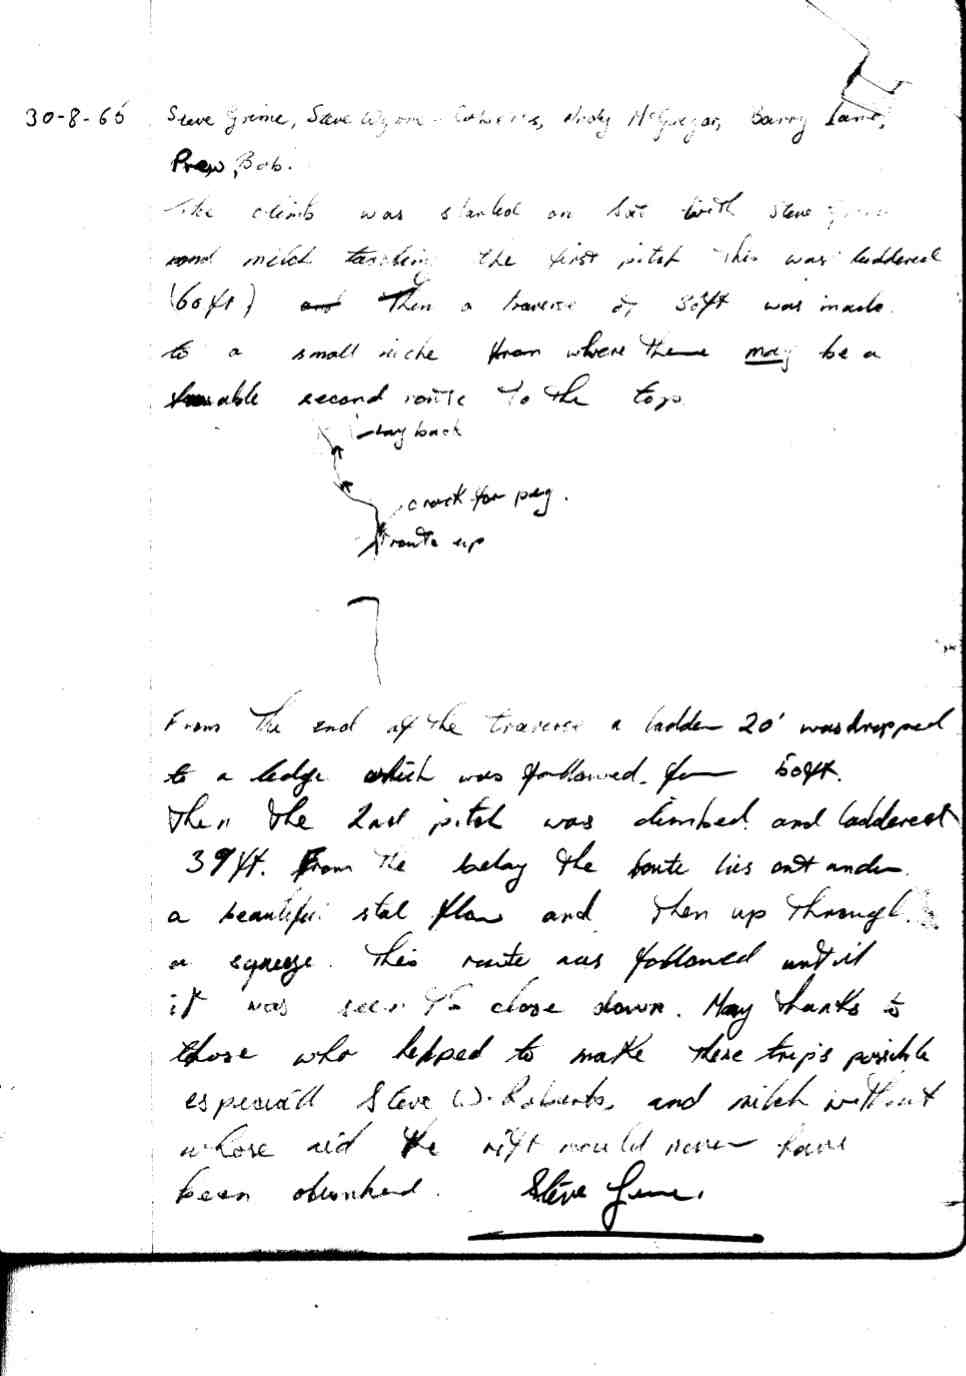 30-8-66 Steve Grime, Steve Wynne-Roberts, Andy McGregor, Barry
Prew, Bob.
The climb was started on Sat with Steve
and mitch tackling the first pitch This was laddered
(60ft) and Then a traverse of 30ft was made
to a small niche from where there may be a
second route to the top.
layback
crack for peg.
route up
From the end of the traverse a ladder 20' was dropped
to a ledge which was followed for 50ft.
Then the 2nd pitch was climbed and laddered
39ft. From the belay the route lies out under
a beautiful stal flow and then up through
a squeeze. This route was followed until
it was seen to close down. Many thanks to
those who helped to make these trips possible
especiall Steve W-Roberts, and mitch without
whose aid the rift would never have
been climbed. Steve Grime.